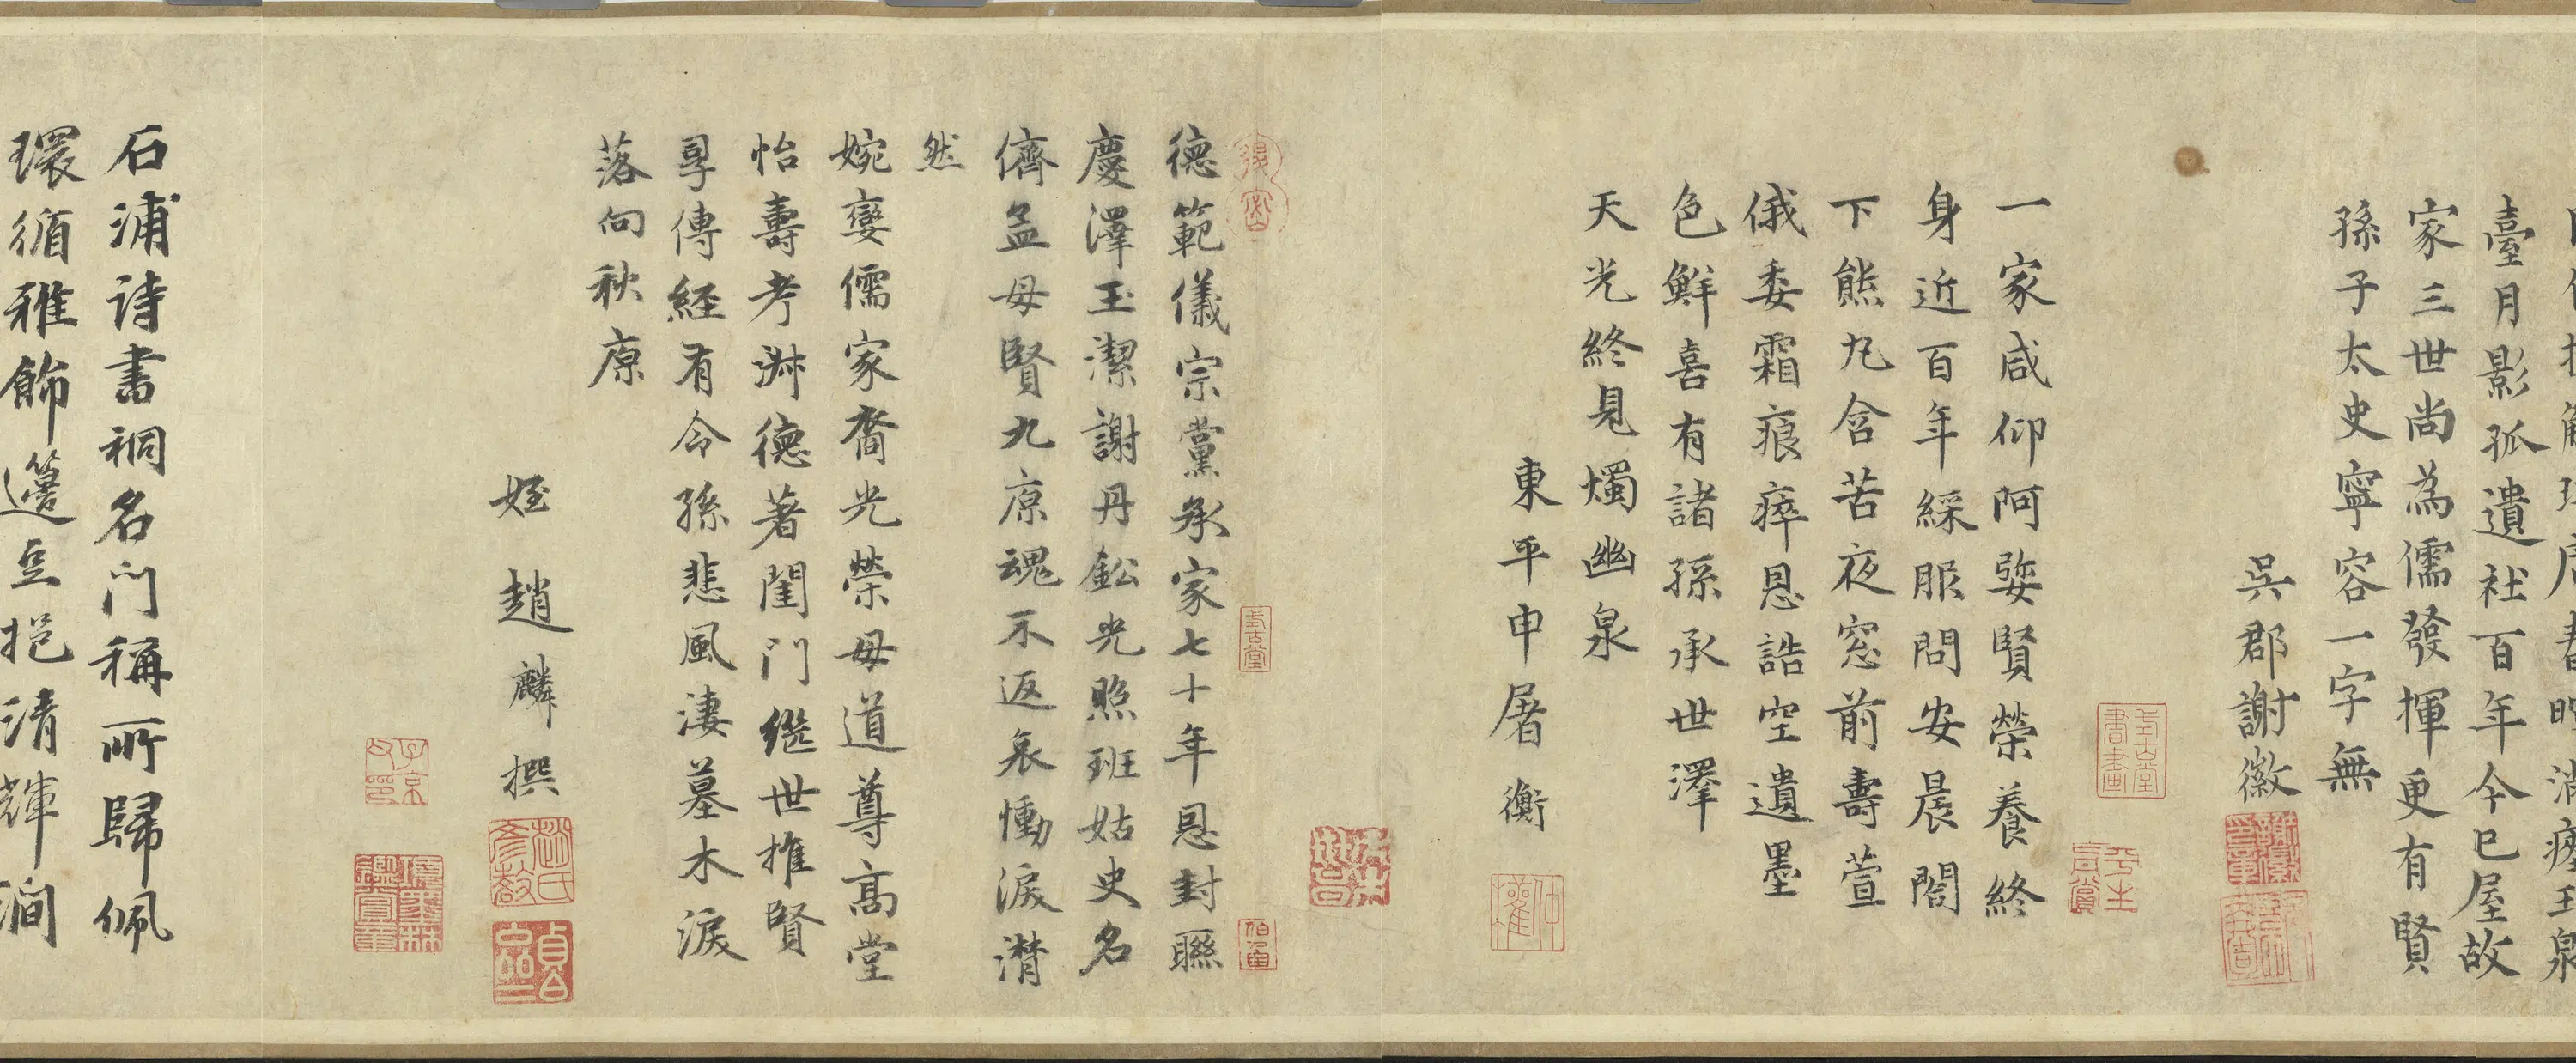 臺月影孤遺社百年今已屋故
家三世尚為儒發揮更有賢
孫子太史寧容一字無
吳郡謝徽
一家咸仰阿㜈賢榮養終
身近百年綵服問安晨閤
下熊丸含苦夜窓前壽萱
俄委霜痕瘁恩誥空遺墨
色鮮喜有諸孫承世澤
天光終見燭幽泉
東平申屠衡
德範儀宗黨承家七十年恩封聯
慶澤玉潔謝丹鈆光照班姑史名
儕孟母賢九原魂不返哀慟淚潸
然
婉孌儒家裔光榮母道尊高堂
怡壽考淋德著閨門繼世推賢
孠傳經有令孫悲風淒墓木淚
落向秋原
姪趙麟撰
石浦詩書裔名門稱所歸佩
環循雅飾籩豆挹清輝澗